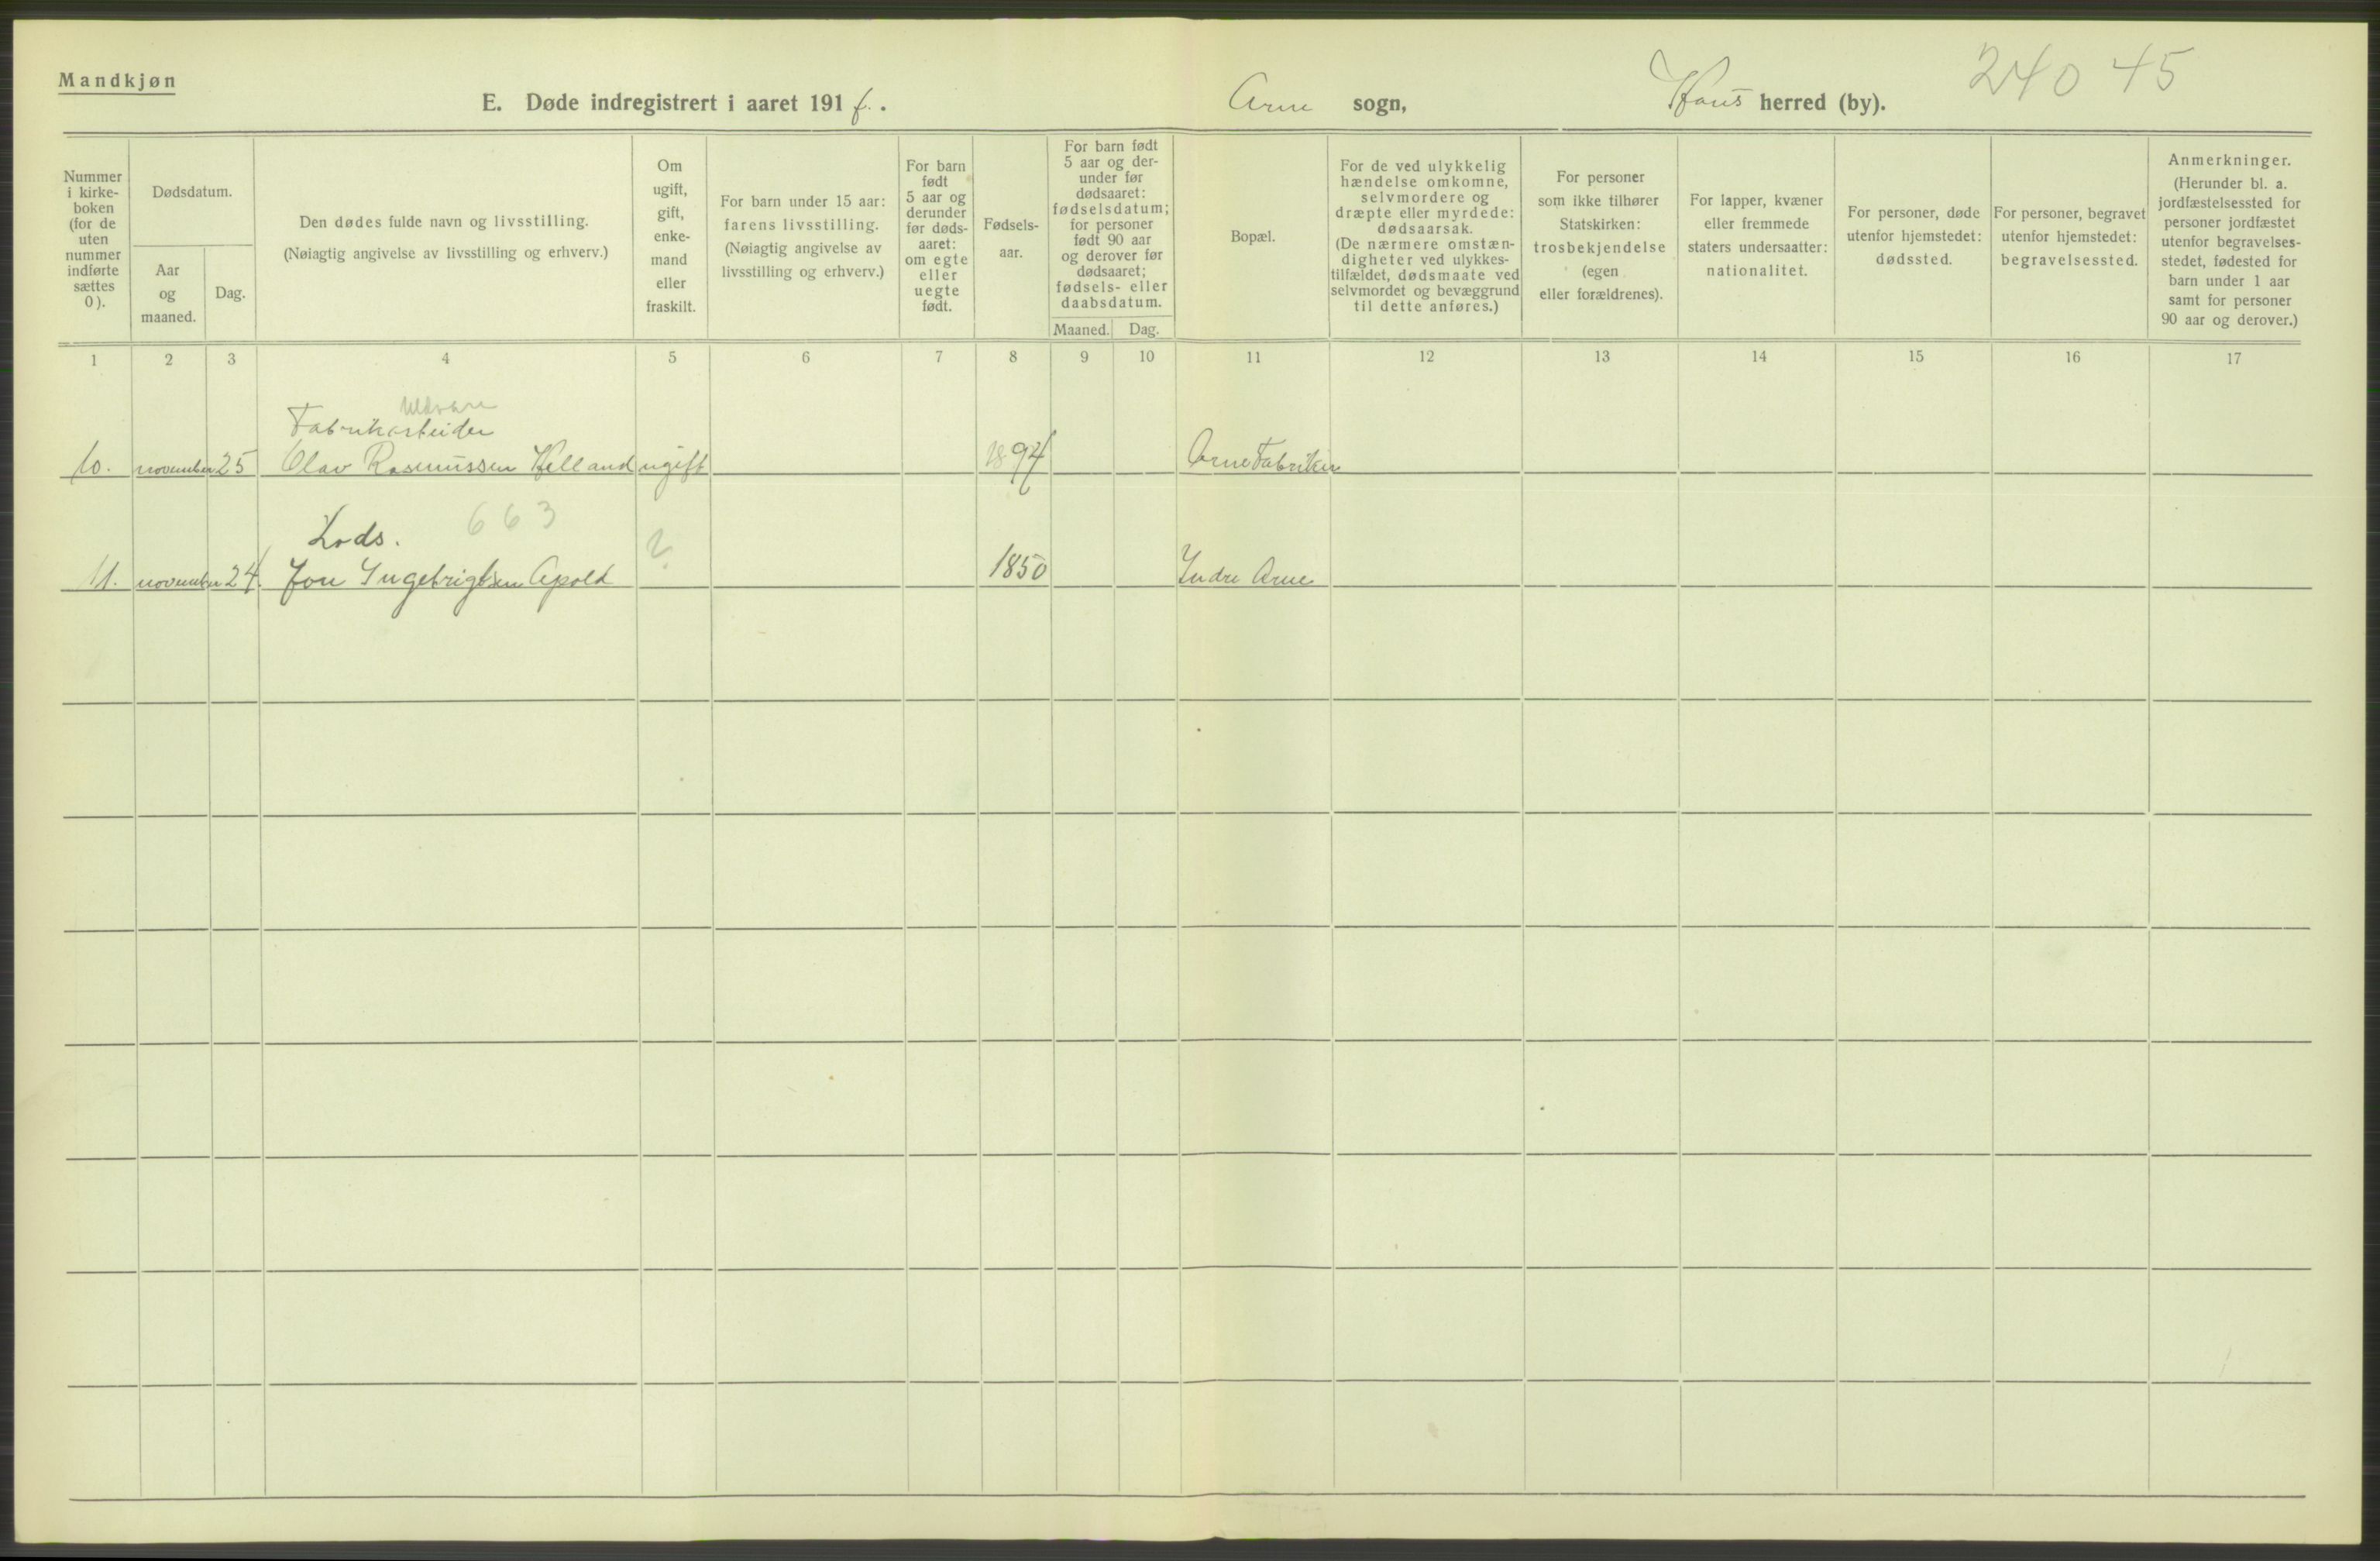 Mandkjøn
E. Døde indregistrert i aaret 191 .
Arne sogn,
Haus herred (by).
240 45
Nummer
i kirke-
boken
(for de
uten
nummer
indførte
sættes
0).
Dødsdatum.
Aar
og
maaned.
Dag.
Den dødes fulde navn og livsstilling.
(Nøiagtig angivelse av livsstilling og erhverv.)
Om
ugift,
gift,
enke-
mand
eller
fraskilt.
For barn under 15 aar:
farens livsstilling.
(Nøiagtig angivelse av
livsstilling og erhverv.)
For barn
født
5 aar og
derunder
før døds-
aaret:
om egte
eller
uegte
født.
Fødsels-
aar.
For barn født
5 aar og der-
under før
dødsaaret:
fødselsdatum;
for personer
født 90 aar
og derover før
dødsaaret;
fødsels- eller
daabsdatum.
Maaned. Dag.
Bopæl.
For de ved ulykkelig
hændelse omkomne,
selvmordere og
dræpte eller myrdede:
dødsaarsak.
(De nærmere omstæn-
digheter ved ulykkes-
tilfældet, dødsmaate ved
selvmordet og bevæggrund
til dette anføres.)
For personer
som ikke tilhører
Statskirken:
trosbekjendelse
(egen
eller forældrenes).
For lapper, kvæner
eller fremmede
staters undersaatter:
nationalitet.
For personer, døde
utenfor hjemstedet:
dødssted.
For personer, begravet
utenfor hjemstedet:
begravelsessted.
Anmerkninger.
(Herunder bl. a.
jordfæstelsessted for
personer jordfæstet
utenfor begravelses-
stedet, fødested for
barn under 1 aar
samt for personer
90 aar og derover.)
1 2 3 4 5 6 7 8 9 10 11 12 13 14 15 16 17
Uldvare
Fabrikarbeider
10. november 25 Olav Rasmussen Helland ugift 1894 Arne Fabriker
Lods. 663
11. november 24. Jon Ingebrigtsen Apold ? 1850 Indre Arne